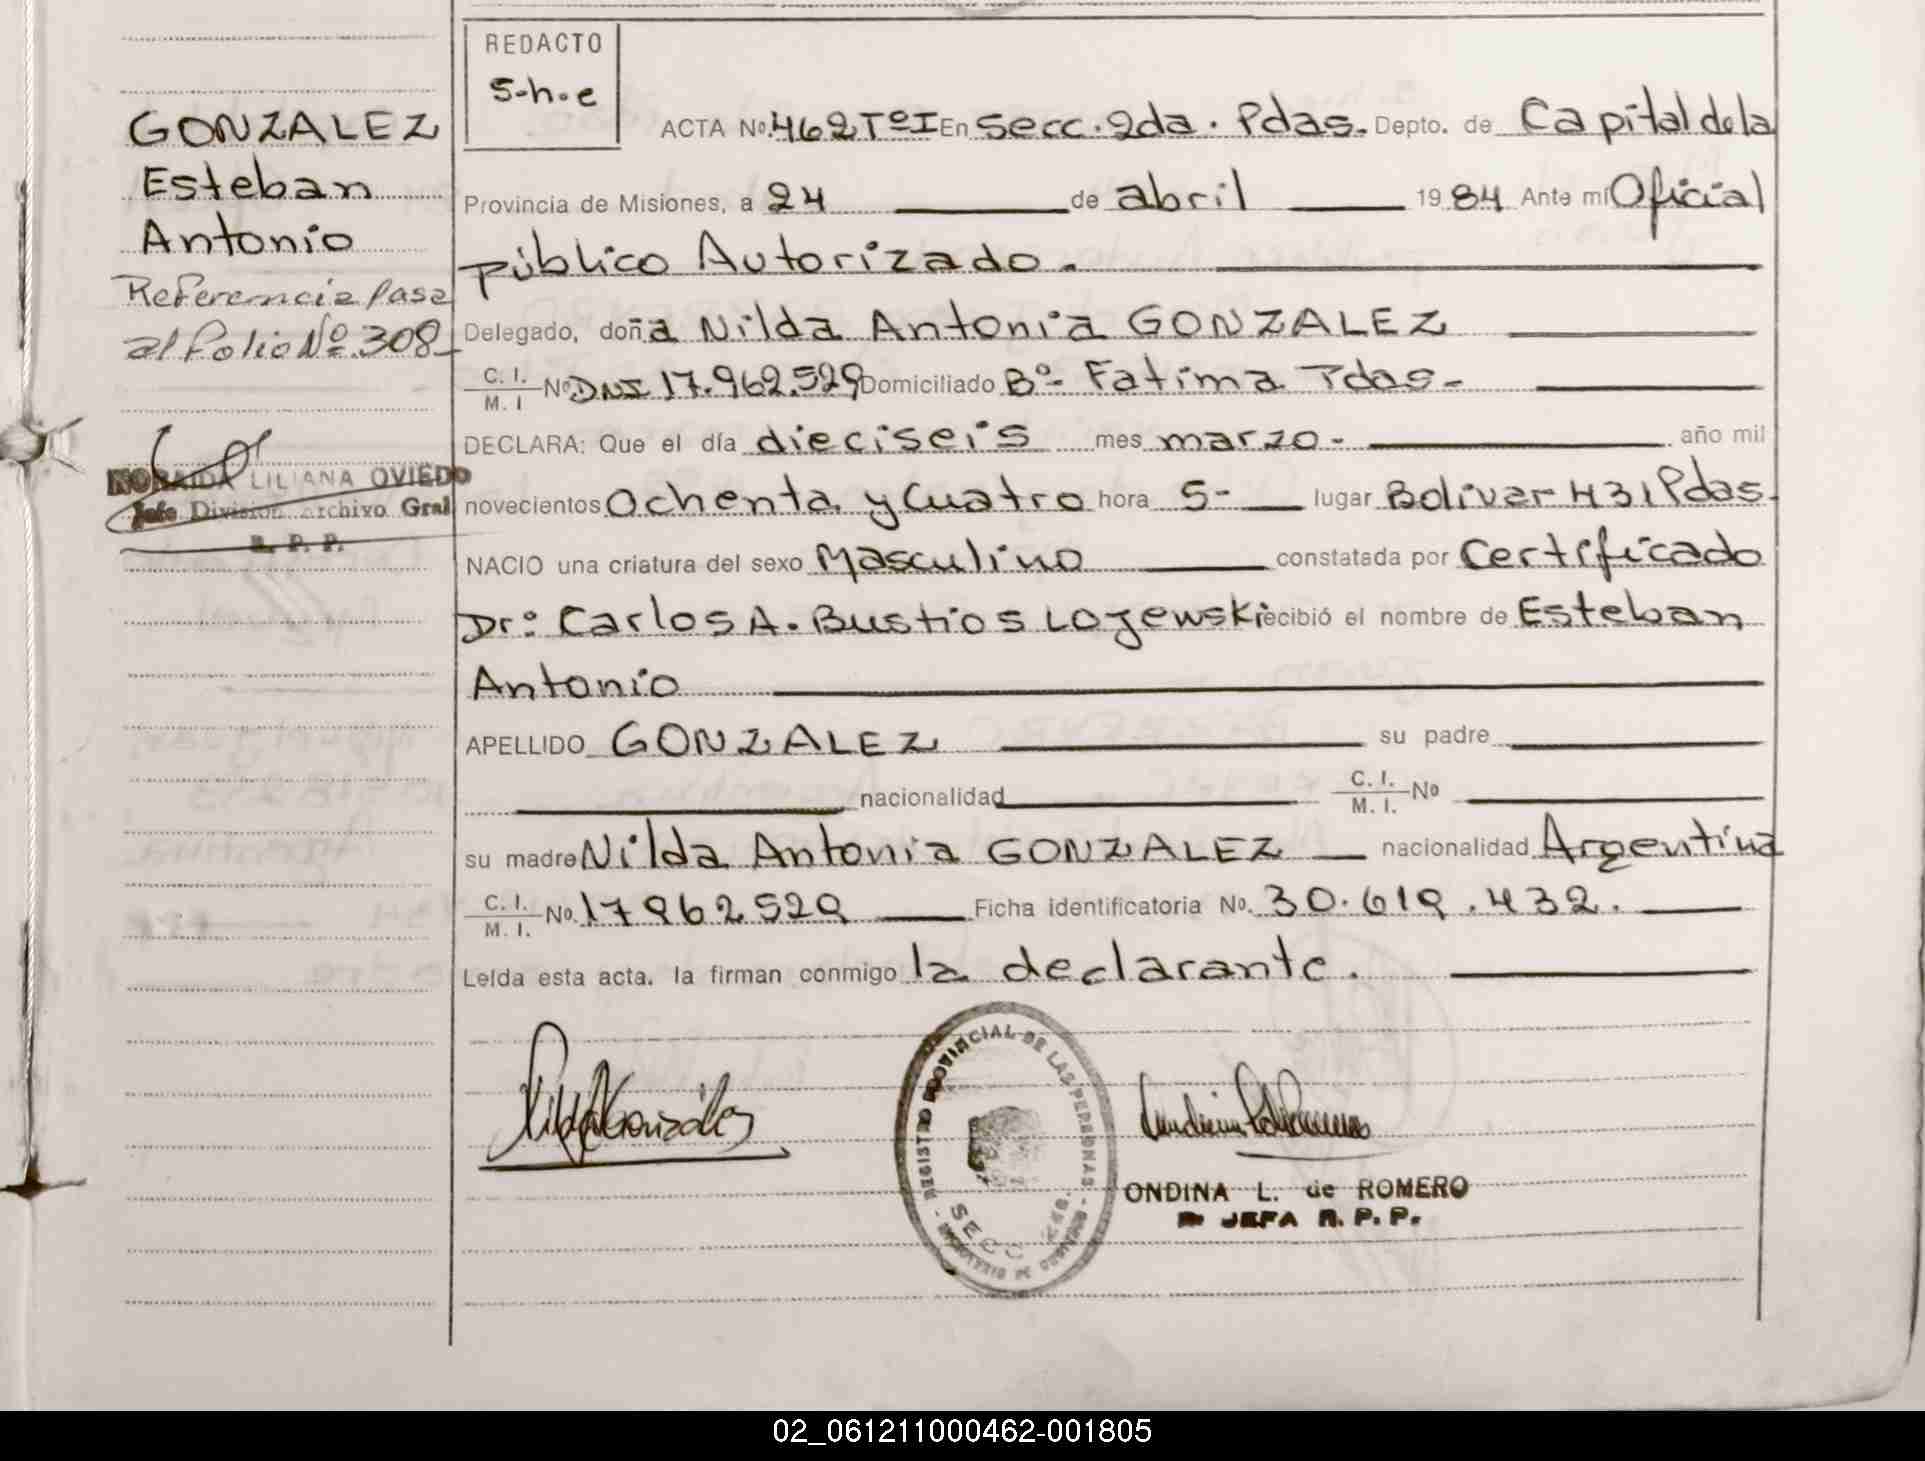 REDACTO
S-h-e
GONZALEZ
Esteban
Antonio
Referencia Pasa
al Folio Nº 308
NORAIDA LILIANA OVIEDO
Jefe División Archivo Gral
R. P. P.
ACTA Nº 462 Tº I En Secc. 2da. Pdas. Depto. de Capital de la
Provincia de Misiones, a 24 de abril 1984 Ante mí Oficial
Público Autorizado.
Delegado, doña Nilda Antonia GONZALEZ
C. I. / M. I Nº DNI 17.962.529 Domiciliado Bº- Fatima Pdas-
DECLARA: Que el día dieciseis mes marzo- año mil
novecientos Ochenta y Cuatro hora 5- lugar Bolivar 431 Pdas-
NACIO una criatura del sexo Masculino constatada por Certificado
Dr: Carlos A. Bustios Lojewski recibió el nombre de Esteban
Antonio
APELLIDO GONZALEZ su padre
nacionalidad C. I. / M. I. Nº
su madre Nilda Antonia GONZALEZ nacionalidad Argentina
C. I. / M. I. No. 17962529 Ficha identificatoria No. 30.619.432.
Leída esta acta. la firman conmigo la declarante.
Nilda A González
REGISTRO PROVINCIAL DE LAS PERSONAS
SECC. 2da.
ONDINA L. de ROMERO
JEFA R. P. P.
02_061211000462-001805